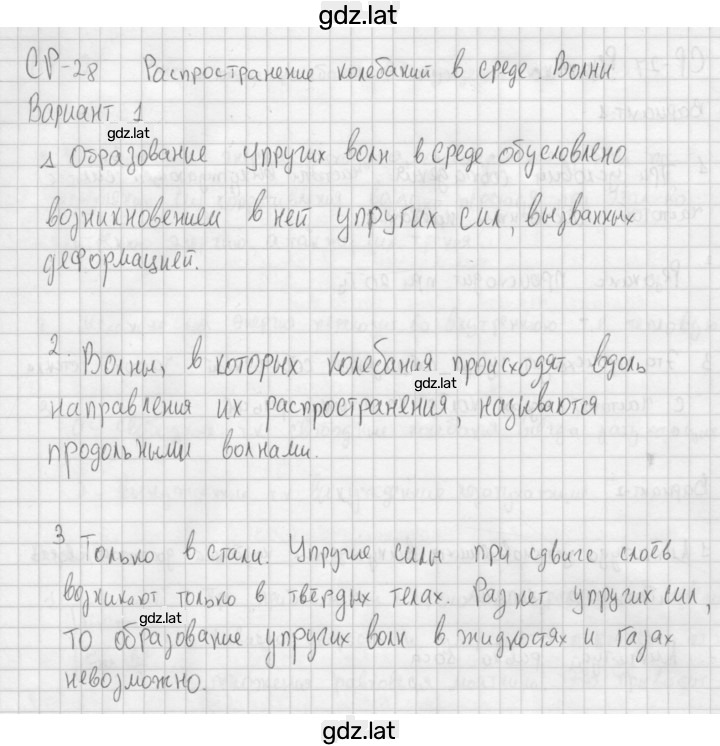 gdz.lat
СР-28 Распространение колебаний в среде Волны
Вариант 1
gdz.lat
1 Образование упругих волн в среде обусловлено
возникновением в ней упругих сил, вызванных
деформацией.
2. Волны, в которых колебания происходят вдоль
gdz.lat
направления их распространения, называются
продольными волнами.
3 Только в стали. Упругие силы при сдвиге слоёв
возникают только в твёрдых телах. Раз нет упругих сил,
gdz.lat
то образование упругих волн в жидкостях и газах
невозможно.
gdz.lat